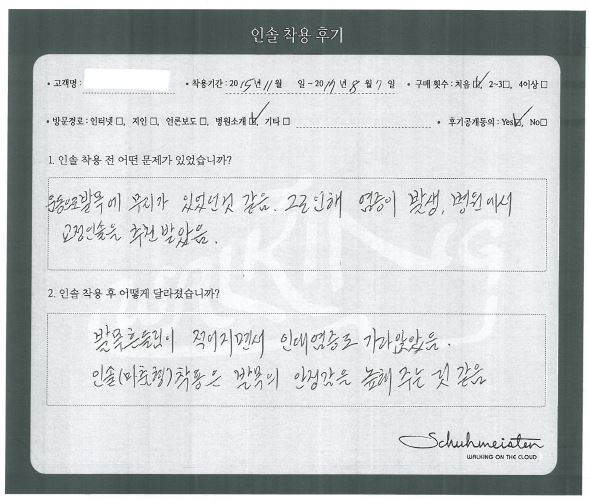 인솔 착용 후기
• 고객명 : • 착용기간 : 2015년 11월 일 ~ 2017년 8월 7일 • 구매 횟수 : 처음☑, 2~3□, 4이상□
• 방문경로 : 인터넷□, 지인□, 언론보도□, 병원소개☑, 기타□ • 후기공개동의 : Yes☑, No□
1. 인솔 착용 전 어떤 문제가 있었습니까?
운동으로 발목에 무리가 있었던것 같음. 그로인해 염증이 발생, 병원에서
교정인솔을 추천 받았음.
2. 인솔 착용 후 어떻게 달라졌습니까?
발목흔들림이 적어지면서 인대염증도 가라앉았음.
인솔(맞춤형)착용은 발목의 안정감을 높혀 주는 것 같음
Schuhmeister
WALKING ON THE CLOUD